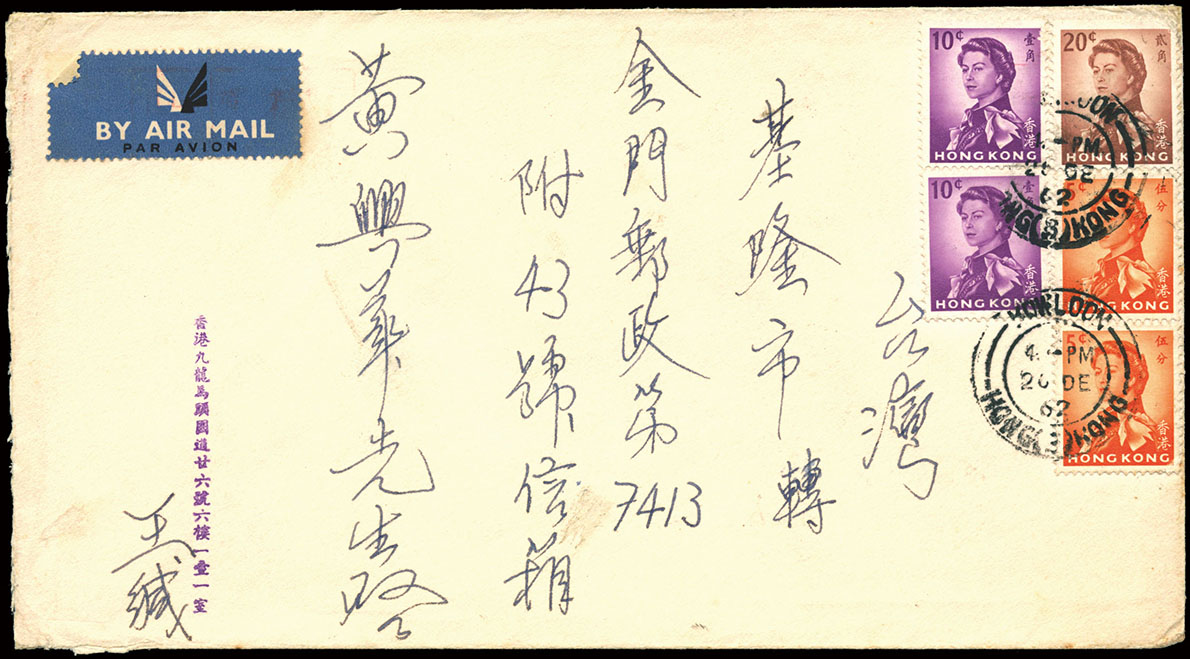 BY AIR MAIL
PAR AVION
10¢ 壹角 香港 HONG KONG
20¢ 貳角 香港 HONG KONG
10¢ 壹角 香港 HONG KONG
5¢ 伍分 香港 HONG KONG
5¢ 伍分 香港 HONG KONG
KOWLOON
PM
DE
62
HONG KONG
KOWLOON
4 PM
26 DE
62
HONG KONG
台灣
基隆市轉
金門郵政第7413
附43號信箱
黃興華先生啓
香港九龍馬頭圍道廿六號六樓一壹一室
王緘